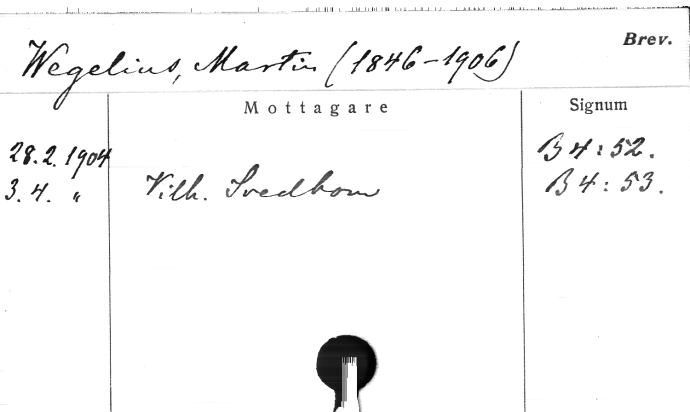 Brev.
Wegelius, Martin (1846-1906)
Mottagare Signum
28.2.1904 B4:52.
3.4. " Vilh. Svedbom B4:53.